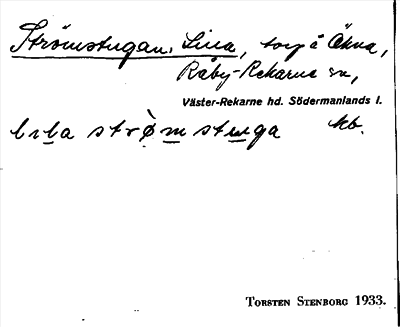 Strömstugan, Lilla, torp å Åkna,
Råby-Rekarne sn,
Väster-Rekarne hd. Södermanlands l.
strømstuga kb.
Torsten Stenborg 1933.